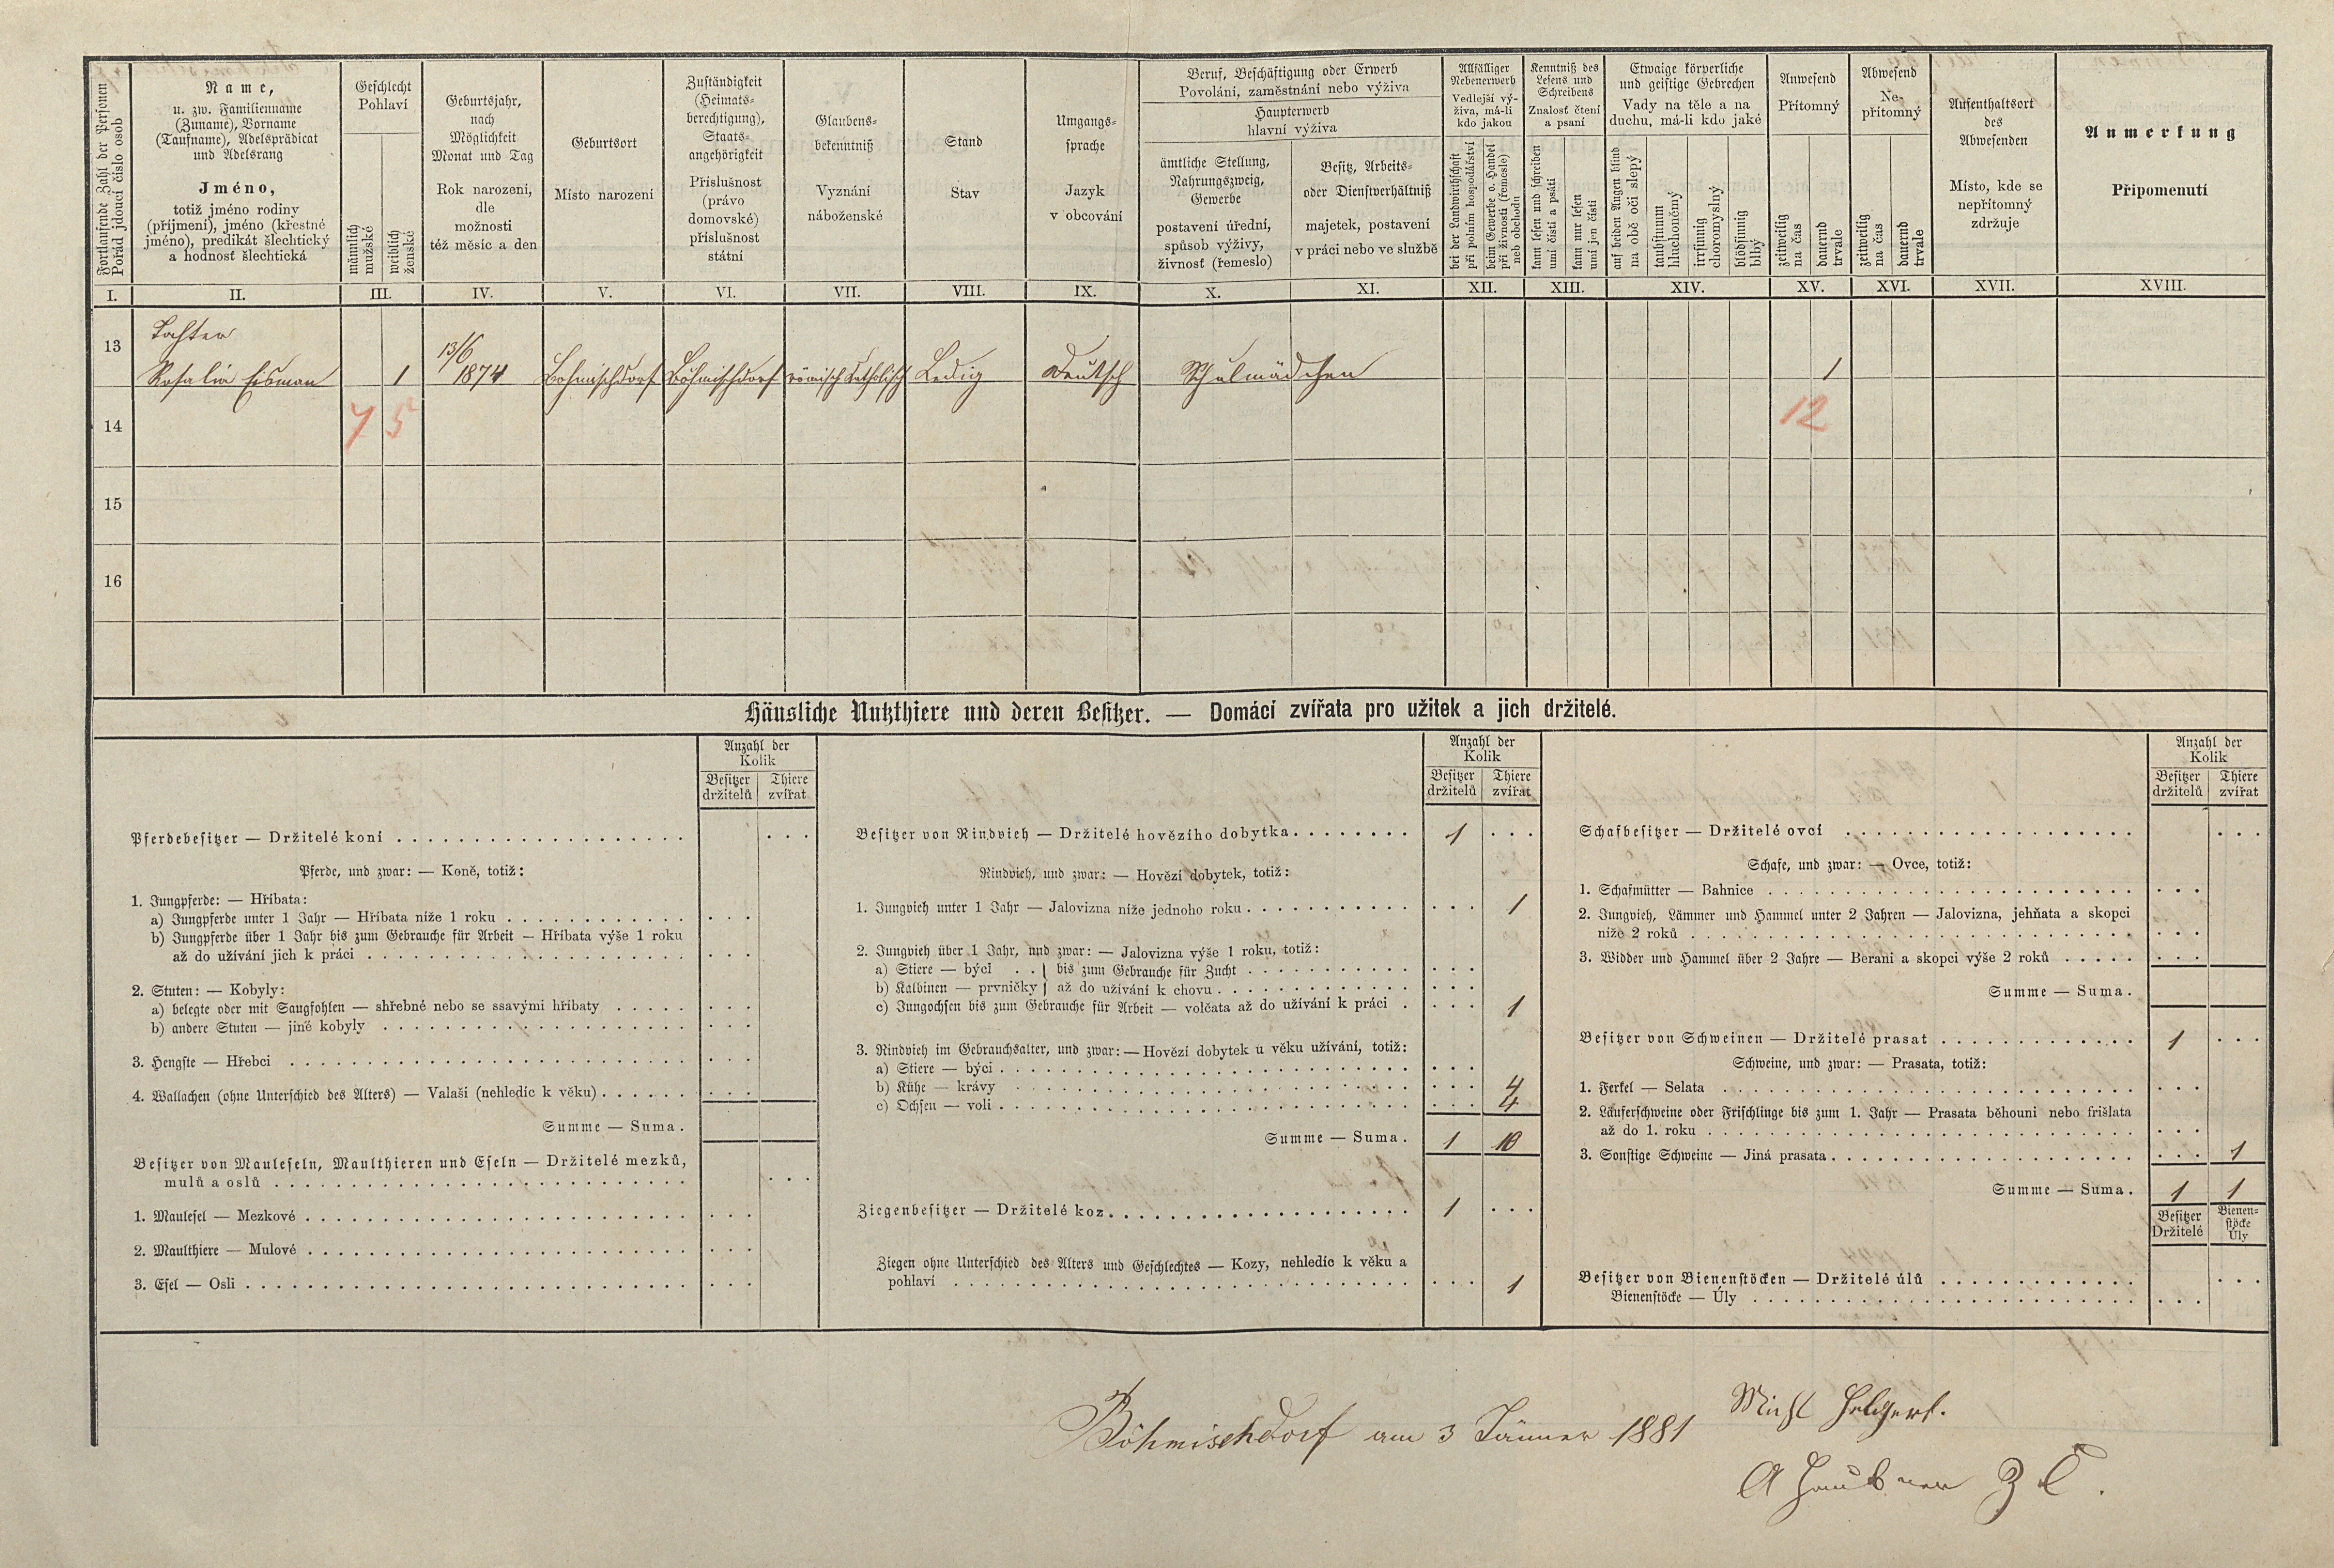 Fortlaufende Zahl der Personen
Pořád jdoucí číslo osob
Name,
u. zw. Familienname
(Zuname), Vorname
(Taufname), Adelsprädicat
und Adelsrang
Jméno,
totiž jméno rodiny
(příjmení), jméno (křestné
jméno), predikát šlechtický
a hodnosť šlechtická
Geschlecht
Pohlaví
männlich
mužské
weiblich
ženské
Geburtsjahr,
nach
Möglichkeit
Monat und Tag
Rok narození,
dle
možnosti
též měsíc a den
Geburtsort
Místo narození
Zuständigkeit
(Heimats-
berechtigung),
Staats-
angehörigkeit
Příslušnost
(právo
domovské)
příslušnost
státní
Glaubens-
bekenntniß
Vyznání
náboženské
Stand
Stav
Umgangs-
sprache
Jazyk
v obcování
Beruf, Beschäftigung oder Erwerb
Povolání, zaměstnání nebo výživa
Haupterwerb
hlavní výživa
ämtliche Stellung,
Nahrungszweig,
Gewerbe
postavení úřední,
spůsob výživy,
živnosť (řemeslo)
Besitz, Arbeits-
oder Dienstverhältniß
majetek, postavení
v práci nebo ve službě
Allfälliger
Nebenerwerb
Vedlejší vý-
živa, má-li
kdo jakou
bei der Landwirthschaft
při polním hospodářství
beim Gewerbe o. Handel
při živnosti (řemesle)
neb obchodu
Kenntniß des
Lesens und
Schreibens
Znalosť čtení
a psaní
kann lesen und schreiben
umí čísti a psáti
kann nur lesen
umí jen čísti
Etwaige körperliche
und geistige Gebrechen
Vady na těle a na
duchu, má-li kdo jaké
auf beiden Augen blind
na obě oči slepý
taubstumm
hluchoněmý
irrsinnig
choromyslný
blödsinnig
blbý
Anwesend
Přítomný
zeitweilig
na čas
dauernd
trvale
Abwesend
Ne-
přítomný
zeitweilig
na čas
dauernd
trvale
Aufenthaltsort
des
Abwesenden
Místo, kde se
nepřítomný
zdržuje
Anmerkung
Připomenutí
I. II. III. IV. V. VI. VII. VIII. IX. X. XI. XII. XIII. XIV. XV. XVI. XVII. XVIII.
13 Tochter
Rosalia Eisman 1 13/6 1874 Bohmischdorf Böhmischdorf römisch katholisch Ledig Deutsch Schulmädchen 1
14 7 5 12
15
16
Häusliche Nutzthiere und deren Besitzer. — Domácí zvířata pro užitek a jich držitelé.
Anzahl der
Kolik
Besitzer
držitelů
Thiere
zvířat
Pferdebesitzer — Držitelé koní
Pferde, und zwar: — Koně, totiž:
1. Jungpferde: — Hříbata:
a) Jungpferde unter 1 Jahr — Hříbata níže 1 roku
b) Jungpferde über 1 Jahr bis zum Gebrauche für Arbeit — Hříbata výše 1 roku
až do užívání jich k práci
2. Stuten: — Kobyly:
a) belegte oder mit Saugfohlen — shřebné nebo se ssavými hříbaty
b) andere Stuten — jiné kobyly
3. Hengste — Hřebci
4. Wallachen (ohne Unterschied des Alters) — Valaši (nehledíc k věku)
Summe — Suma.
Besitzer von Mauleseln, Maulthieren und Eseln — Držitelé mezků,
mulů a oslů
1. Maulesel — Mezkové
2. Maulthiere — Mulové
3. Esel — Osli
Anzahl der
Kolik
Besitzer
držitelů
Thiere
zvířat
Besitzer von Rindvieh — Držitelé hovězího dobytka 1
Rindvieh, und zwar: — Hovězí dobytek, totiž:
1. Jungvieh unter 1 Jahr — Jalovizna níže jednoho roku 1
2. Jungvieh über 1 Jahr, und zwar: — Jalovizna výše 1 roku, totiž:
a) Stiere — býci } bis zum Gebrauche für Zucht
b) Kalbinen — prvničky } až do užívání k chovu
c) Jungochsen bis zum Gebrauche für Arbeit — volčata až do užívání k práci 1
3. Rindvieh im Gebrauchsalter, und zwar: — Hovězí dobytek u věku užívání, totiž:
a) Stiere — býci
b) Kühe — krávy 4
c) Ochsen — voli 4
Summe — Suma. 1 10
Ziegenbesitzer — Držitelé koz 1
Ziegen ohne Unterschied des Alters und Geschlechtes — Kozy, nehledíc k věku a
pohlaví 1
Anzahl der
Kolik
Besitzer
držitelů
Thiere
zvířat
Schafbesitzer — Držitelé ovcí
Schafe, und zwar: — Ovce, totiž:
1. Schafmütter — Bahnice
2. Jungvieh, Lämmer und Hammel unter 2 Jahren — Jalovizna, jehňata a skopci
níže 2 roků
3. Widder und Hammel über 2 Jahre — Berani a skopci výše 2 roků
Summe — Suma.
Besitzer von Schweinen — Držitelé prasat 1
Schweine, und zwar: — Prasata, totiž:
1. Ferkel — Selata
2. Läuferschweine oder Frischlinge bis zum 1. Jahr — Prasata běhouni nebo frišlata
až do 1. roku
3. Sonstige Schweine — Jiná prasata 1
Summe — Suma. 1 1
Besitzer
Držitelé
Bienen-
stöcke
Úly
Besitzer von Bienenstöcken — Držitelé úlů
Bienenstöcke — Úly
Böhmischdorf am 3 Jänner 1881